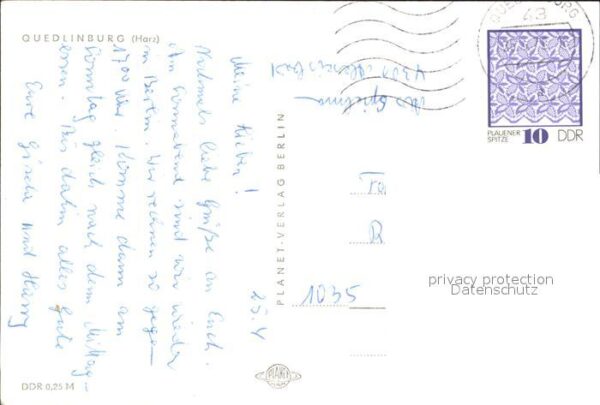 QUEDLINBURG (Harz)
25.4
Meine Lieben!
Nochmals liebe Grüße an Euch.
Am Sonnabend sind wir wieder
in Berlin. Wir rechnen so gegen
1700 Uhr. Komme dann am
Sonntag gleich nach dem Mittag-
essen. Bis dahin alles Gute
Eure Gisela und Harry
PLANET-VERLAG BERLIN
PLANET
DDR 0,25 M
QUEDLINBURG
43
PLAUENER
SPITZE
10 DDR
1035
privacy protection
Datenschutz